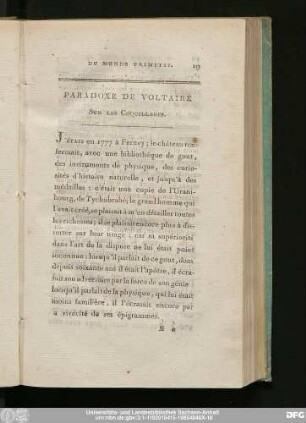 DU MONDE PRIMITIF.
PARADOXE DE VOLTAIRE
SUR LES COQUILLAGES.
J'étais en 1777 à Ferney; le château ren-
fermait, avec une bibliothèque de gout,
des instruments de physique, des curio-
sités d'histoire naturelle, et jusqu'à des
médailles : c'était une copie de l'Urani-
bourg, de Tychobrahé; le grand homme qui
l'avait créé, se plaisait à m'en détailler toutes
les richesses; il se plaisait encore plus à dis-
cuter sur leur usage : car sa supériorité
dans l'art de la dispute ne lui était point
inconnue; lorsqu'il parlait de ce gout, dont
depuis soixante ans il était l'apôtre, il écra-
sait son adversaire par la force de son génie :
lorsqu'il parlait de la physique, qui lui était
moins familière, il l'écrasait encore par
la vivacité de ses épigrammes.
Universitäts- und Landesbibliothek Sachsen-Anhalt
DFG